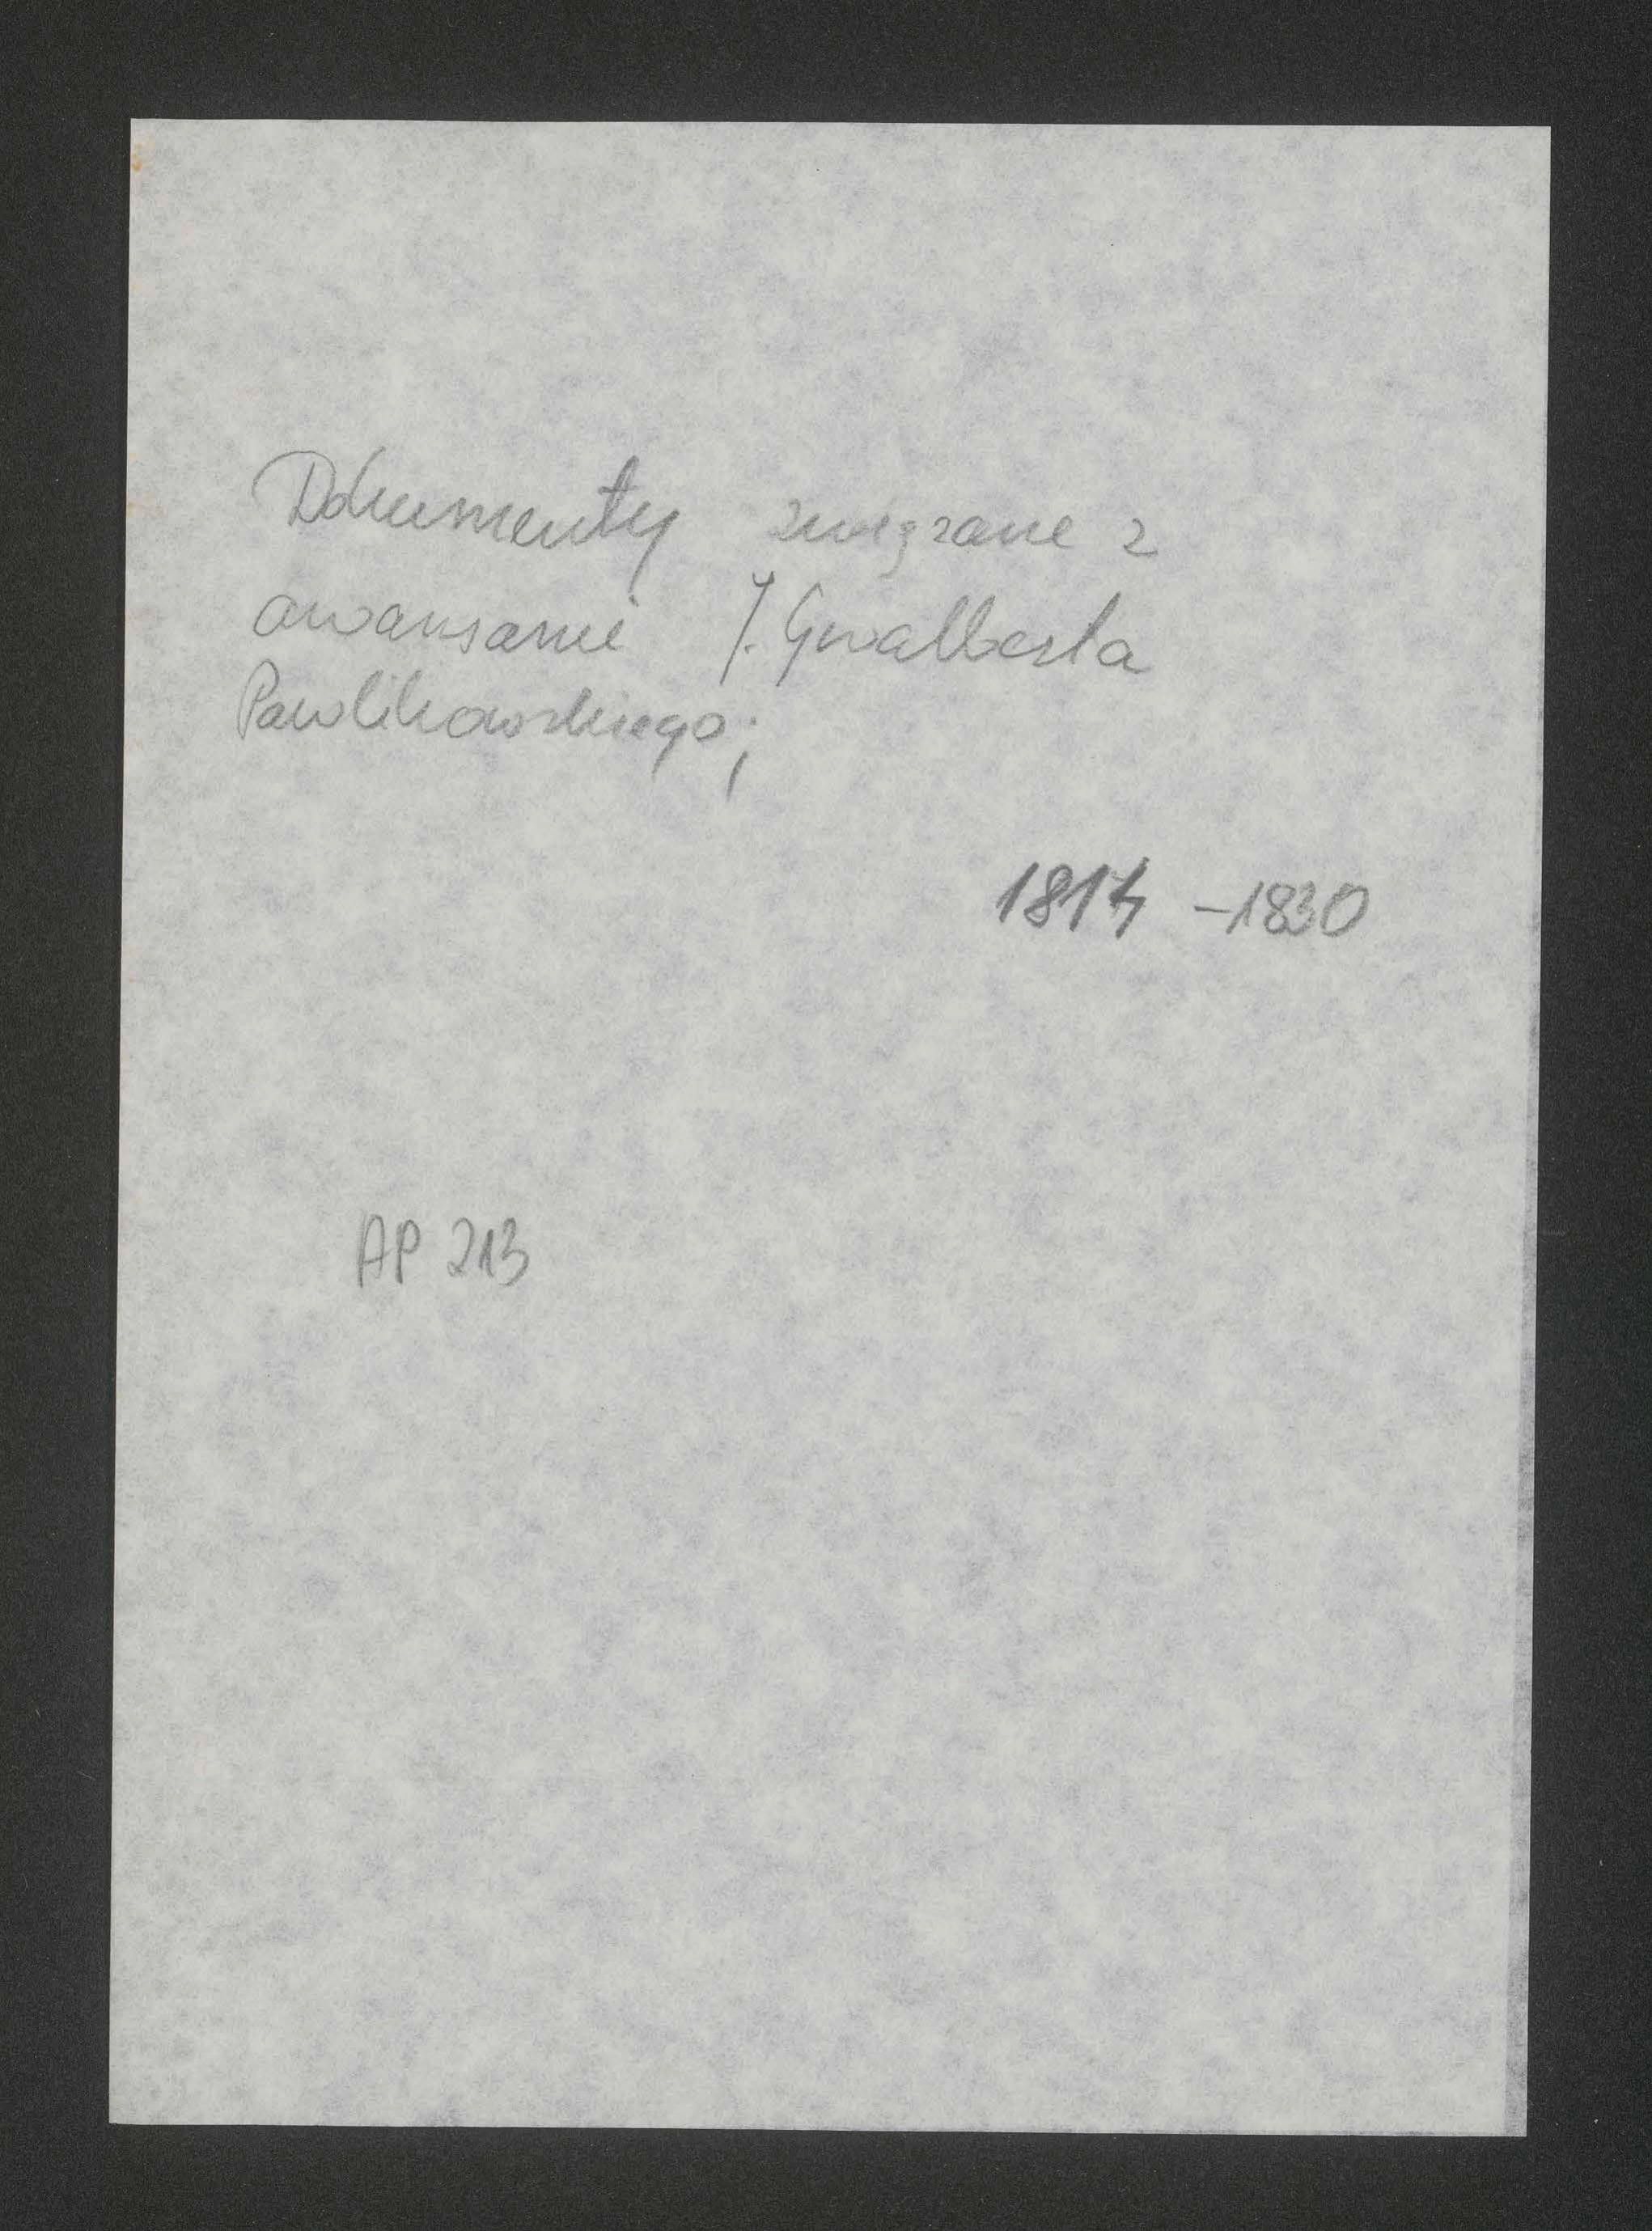 Dokumenty związane z
awansami J. Gwalberta
Pawlikowskiego;
1814 - 1830
AP 213